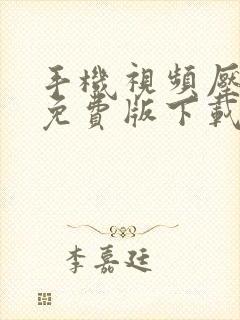 手機視頻壓
免費版下載
李嘉廷